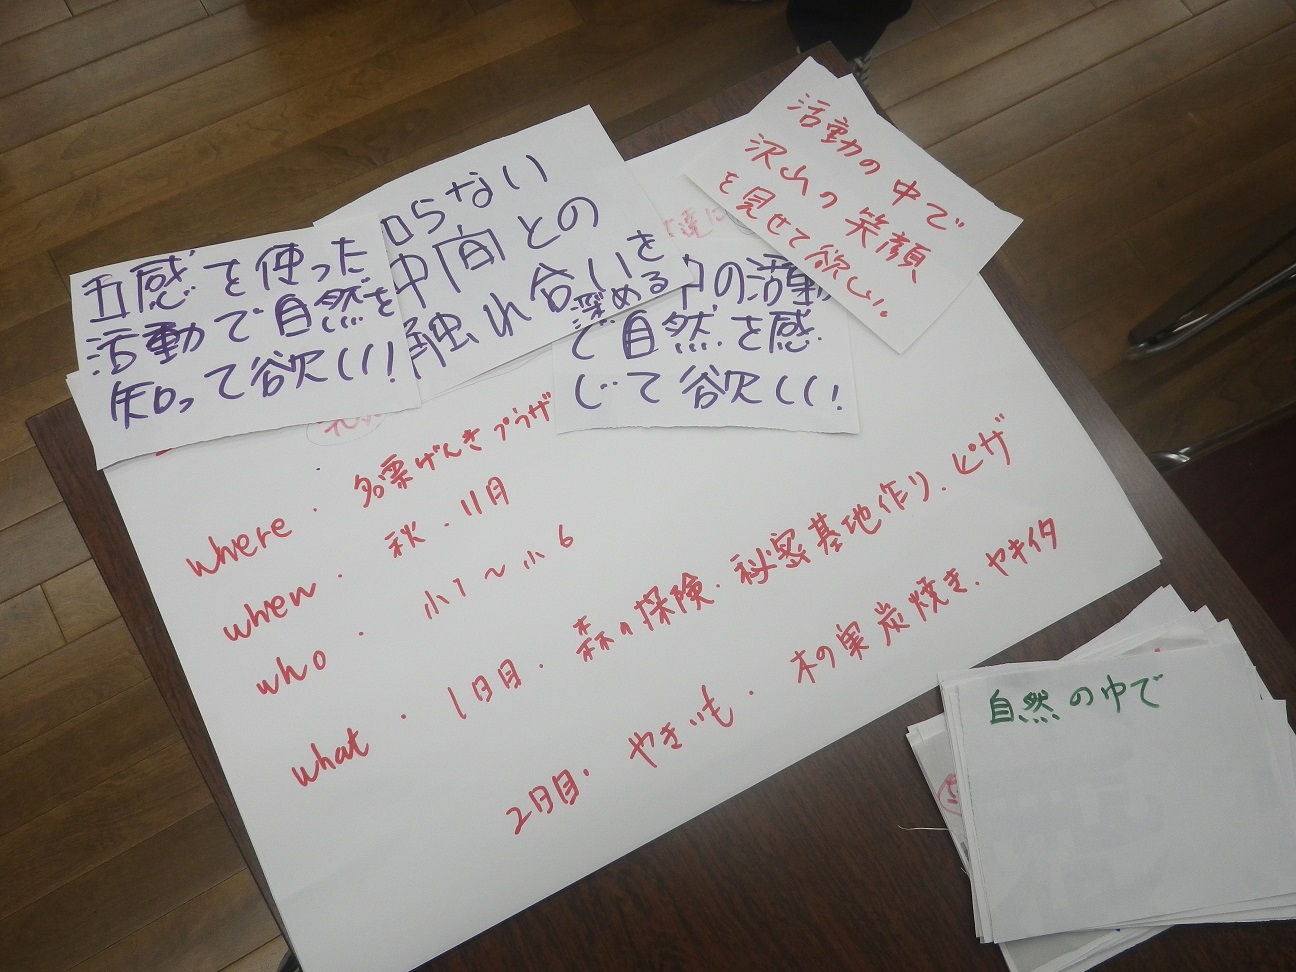 五感を使った
活動で自然を
知って欲しい!
らない
仲間との
触れ合いを
深める
の活動
で自然を感
じて欲しい!
活動の中で
沢山の笑顔
を見せて欲しい!
where. 名栗げんきプラザ
when. 秋.11月
who. 小1~小6
what. 1日目. 森の探険.秘密基地作り.ピザ
2日目. やきいも. 木の実炭焼き.ヤキイタ
自然の中で